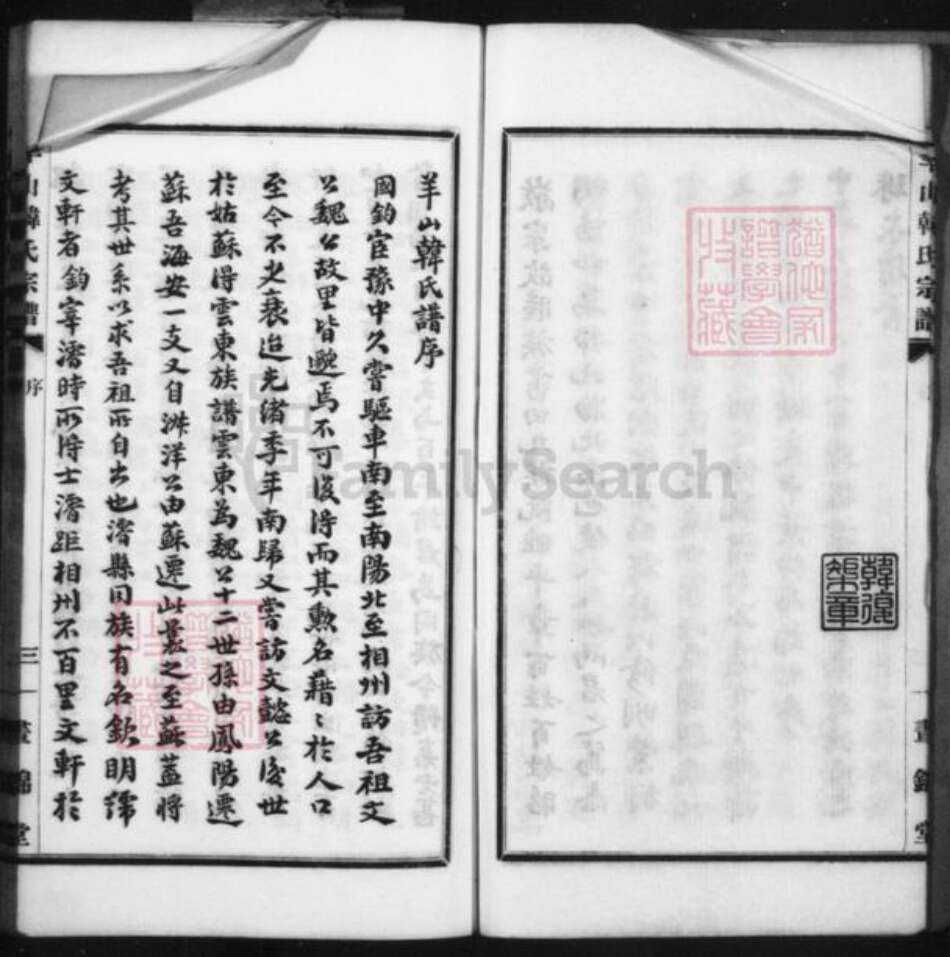 羊山韓氏宗譜
畫錦堂
韓復榘章
羊山韓氏譜序
國鈞宦豫中久嘗驅車南至南陽北至相州訪吾祖文
公魏公故里皆邈焉不可復得而其勲名藉〻於人口
至今不少衰迨光緒季年南歸又嘗訪文懿公後世
於姑蘇得雲東族譜雲東為魏公十二世孫由鳳陽遷
蘇吾海安一支又自洋公由蘇遷此最之至蘇蓋將
考其世系以求吾祖所自出也濬縣同族有名欽明號
文軒者鈞宰濬時所得士濬距相州不百里文軒於
羊山韓氏宗譜
序
三
畫錦堂
FamilySearch